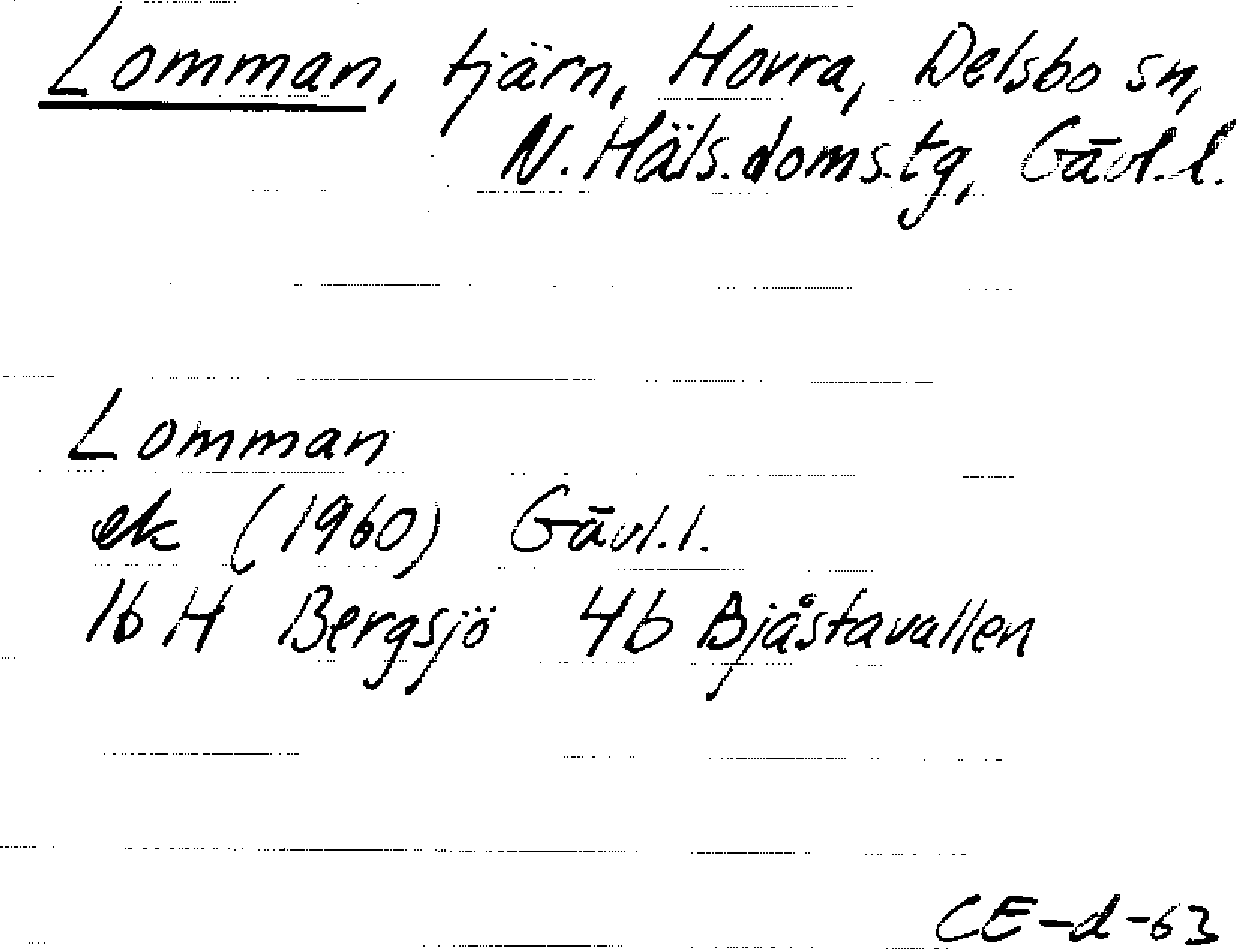 Lomman, tjärn, Hovra, Delsbo sn,
N. Häls. doms.tg, Gävl.l.
Lomman
ek (1960) Gävl.l.
16 H Bergsjö 4b Bjåstavallen
CE-d-63